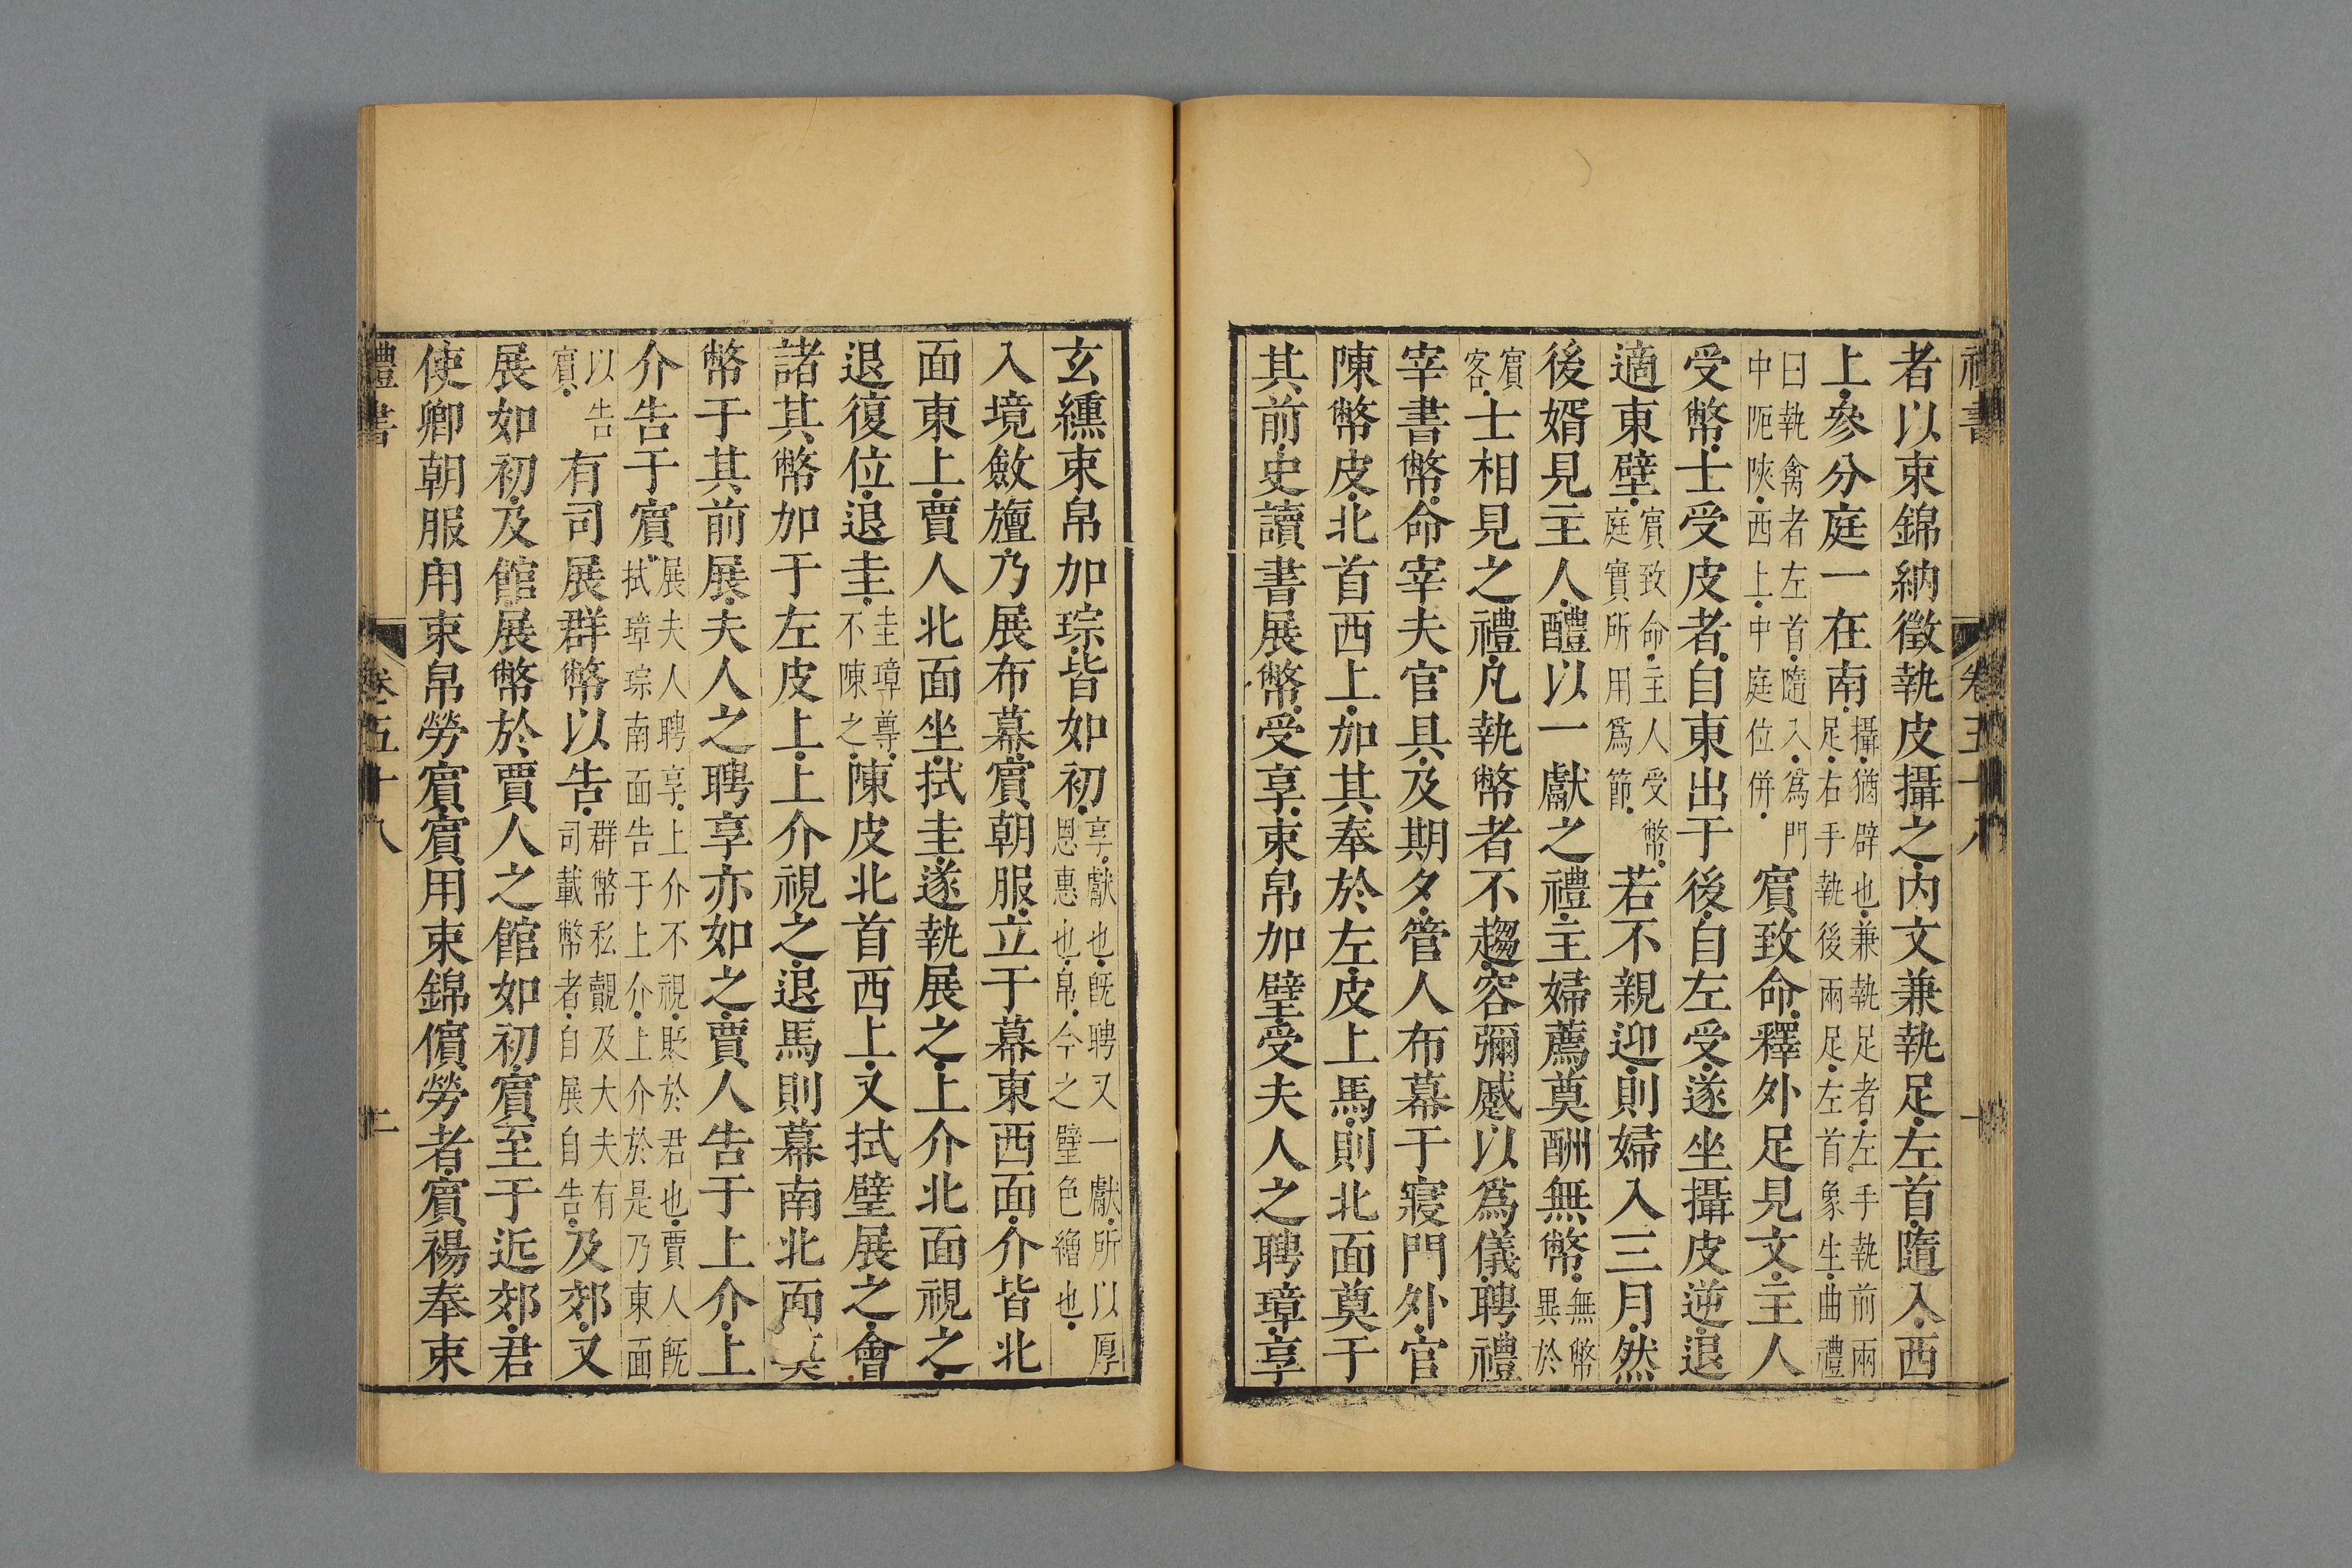 者以束錦納徵執皮攝之内文兼執足左首隨入西
上參分庭一在南攝猶辟也兼執足者左手執前兩足右手執後兩足左首象生曲禮
曰執禽者左首隨入爲門中阨陜西上中庭位併賓致命釋外足見文主人
受幣士受皮者自東出于後自左受遂坐攝皮逆退
適東壁賓致命主人受幣庭實所用爲節若不親迎則婦入三月然
後婿見主人醴以一獻之禮主婦薦奠酬無幣無幣異於
賓客士相見之禮凡執幣者不趨容彌蹙以爲儀聘禮
宰書幣命宰夫官具及期夕管人布幕于寢門外官
陳幣皮北首西上加其奉於左皮上馬則北面奠于
其前史讀書展幣受享束帛加璧受夫人之聘璋享
玄纁束帛加琮皆如初享獻也既聘又一獻所以厚恩惠也帛今之璧色繒也
入境斂旜乃展布幕賓朝服立于幕東西面介皆北
面東上賈人北面坐拭圭遂執展之上介北面視之
退復位退圭圭璋尊不陳之陳皮北首西上又拭璧展之會
諸其幣加于左皮上上介視之退馬則幕南北面奠
幣于其前展夫人之聘享亦如之賈人告于上介上
介告于賓展夫人聘享上介不視貶於君也賈人既拭璋琮南面告于上介上介於是乃東面
以告賓有司展群幣以告群幣私覿及大夫有司載幣者自展自告及郊又
展如初及館展幣於賈人之館如初賓至于近郊君
使卿朝服用束帛勞賓賓用束錦儐勞者賓裼奉束
禮書 卷五十八 二